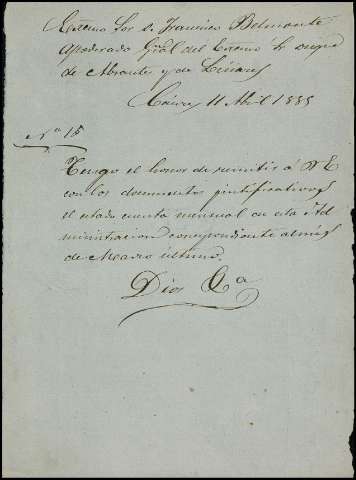 Excmo Sor D. Francisco Belmonte
Apoderado Gral del Excmo Sr Duque
de Abrantes y de Linares
11 Abril 1885
Nº 15
Tengo el honor de remitir á V E
con los documentos justificativos
el estado cuenta mensual de esta Ad
ministracion correspondiente al mes
de Marzo último.
Dios &a